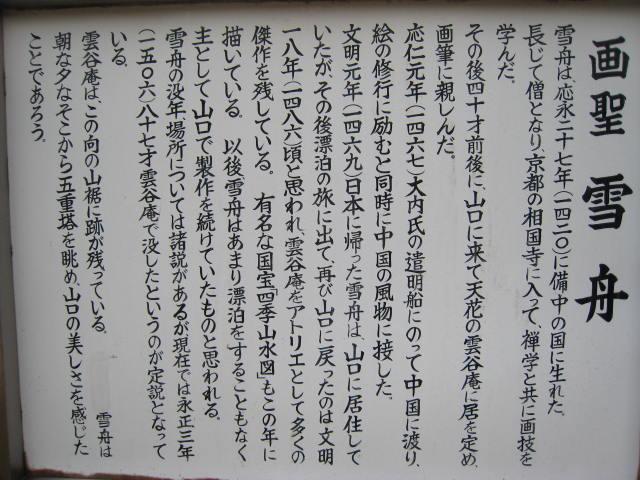 画聖 雪舟
雪舟は、応永二十七年(一四二〇)に備中の国に生れた。
長じて僧となり、京都の相国寺に入って、禅学と共に画技を
学んだ。
その後四十才前後に、山口に来て天花の雲谷庵に居を定め、
画筆に親しんだ。
応仁元年(一四六七)大内氏の遣明船にのって中国に渡り、
絵の修行に励むと同時に中国の風物に接した。
文明元年(一四六九)日本に帰った雪舟は、山口に居住して
いたが、その後漂泊の旅に出て、再び山口に戻ったのは文明
一八年(一四八六)頃と思われ、雲谷庵をアトリエとして多くの
傑作を残している。 有名な国宝「四季山水図」もこの年に
描いている。 以後、雪舟はあまり漂泊をすることもなく
主として山口で製作を続けていたものと思われる。
雪舟の没年、場所については諸説があるが現在では永正三年
(一五〇六)八十七才雲谷庵で没したというのが定説となって
いる。
雲谷庵は、この向の山裾に跡が残っている。 雪舟は
朝な夕なそこから五重塔を眺め、山口の美しさを感じた
ことであろう。